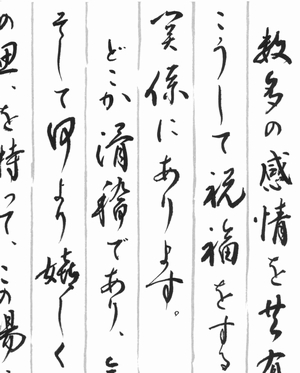 数多の感情を共有
こうして祝福をする
関係にあります。
どこか滑稽であり、
そして何より嬉しく
の思いを持って、この場